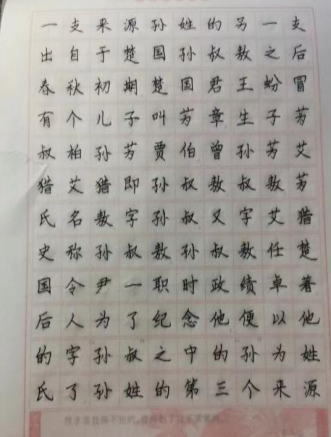 一支来源孙姓的另一支
出自于楚国孙叔敖之后
春秋初期楚国君王蚡冒
有个儿子叫艻章生子艻
叔柏孙艻贾伯曾孙艻艾
猎艾猎即孙叔敖叔敖艻
氏名敖字孙叔又字艾猎
史称孙叔敖孙叔敖任楚
国令尹一职时政绩卓著
后人为了纪念他便以他
的字孙叔之中的孙为姓
氏了孙姓的第三个来源